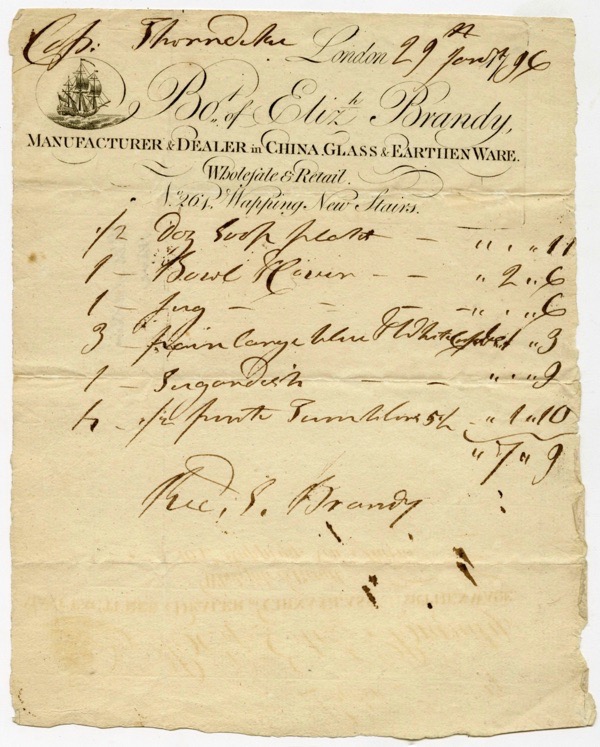 Cap: Thorndike London 29th Jany 1796
Bot. of Elizh. Brandy,
MANUFACTURER & DEALER in CHINA, GLASS & EARTHEN WARE.
Wholesale & Retail.
No. 261, Wapping New Stairs.
1/2 Doz Soop plats — " . " 11
1 — Bowl — — " 2 " 6
1 — Jug — — — " . " 6
3 — pair large blue & White " 1 " 3
1 — Sugardish — — " . " 9
1/2 pint Tumblers " 1 " 10
" 7 " 9
Rec, Brandy